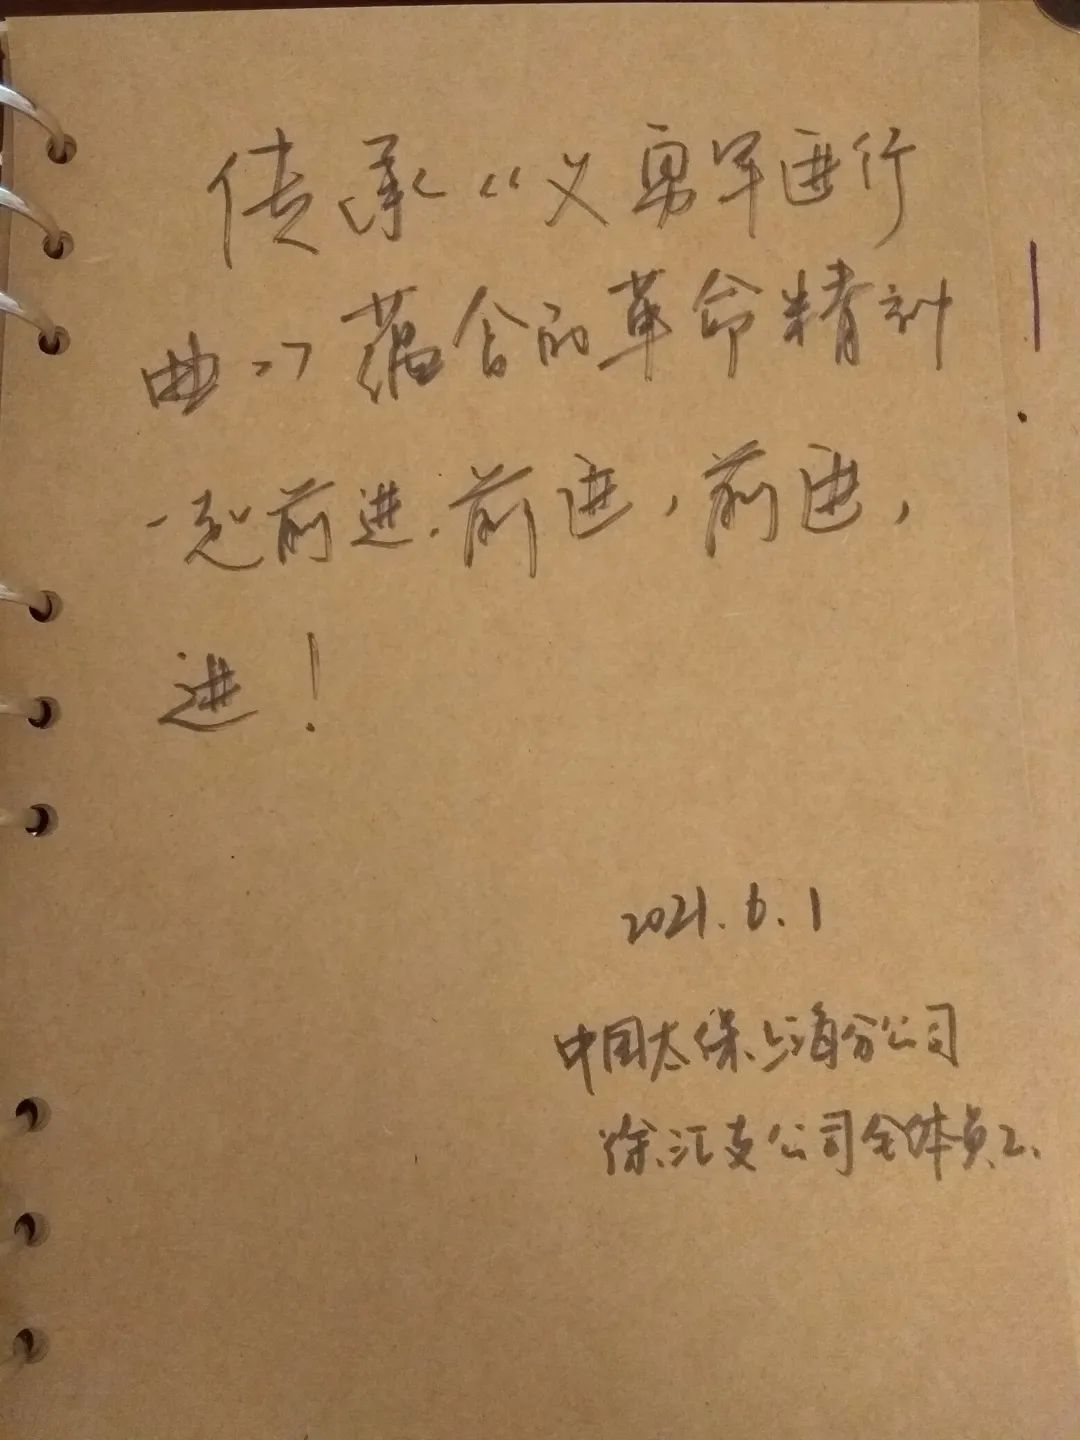 传承《义勇军进行
曲》蕴含的革命精神
一起前进.前进,前进,
进!
2021.6.1
中国太保上海分公司
徐汇支公司全体员工.